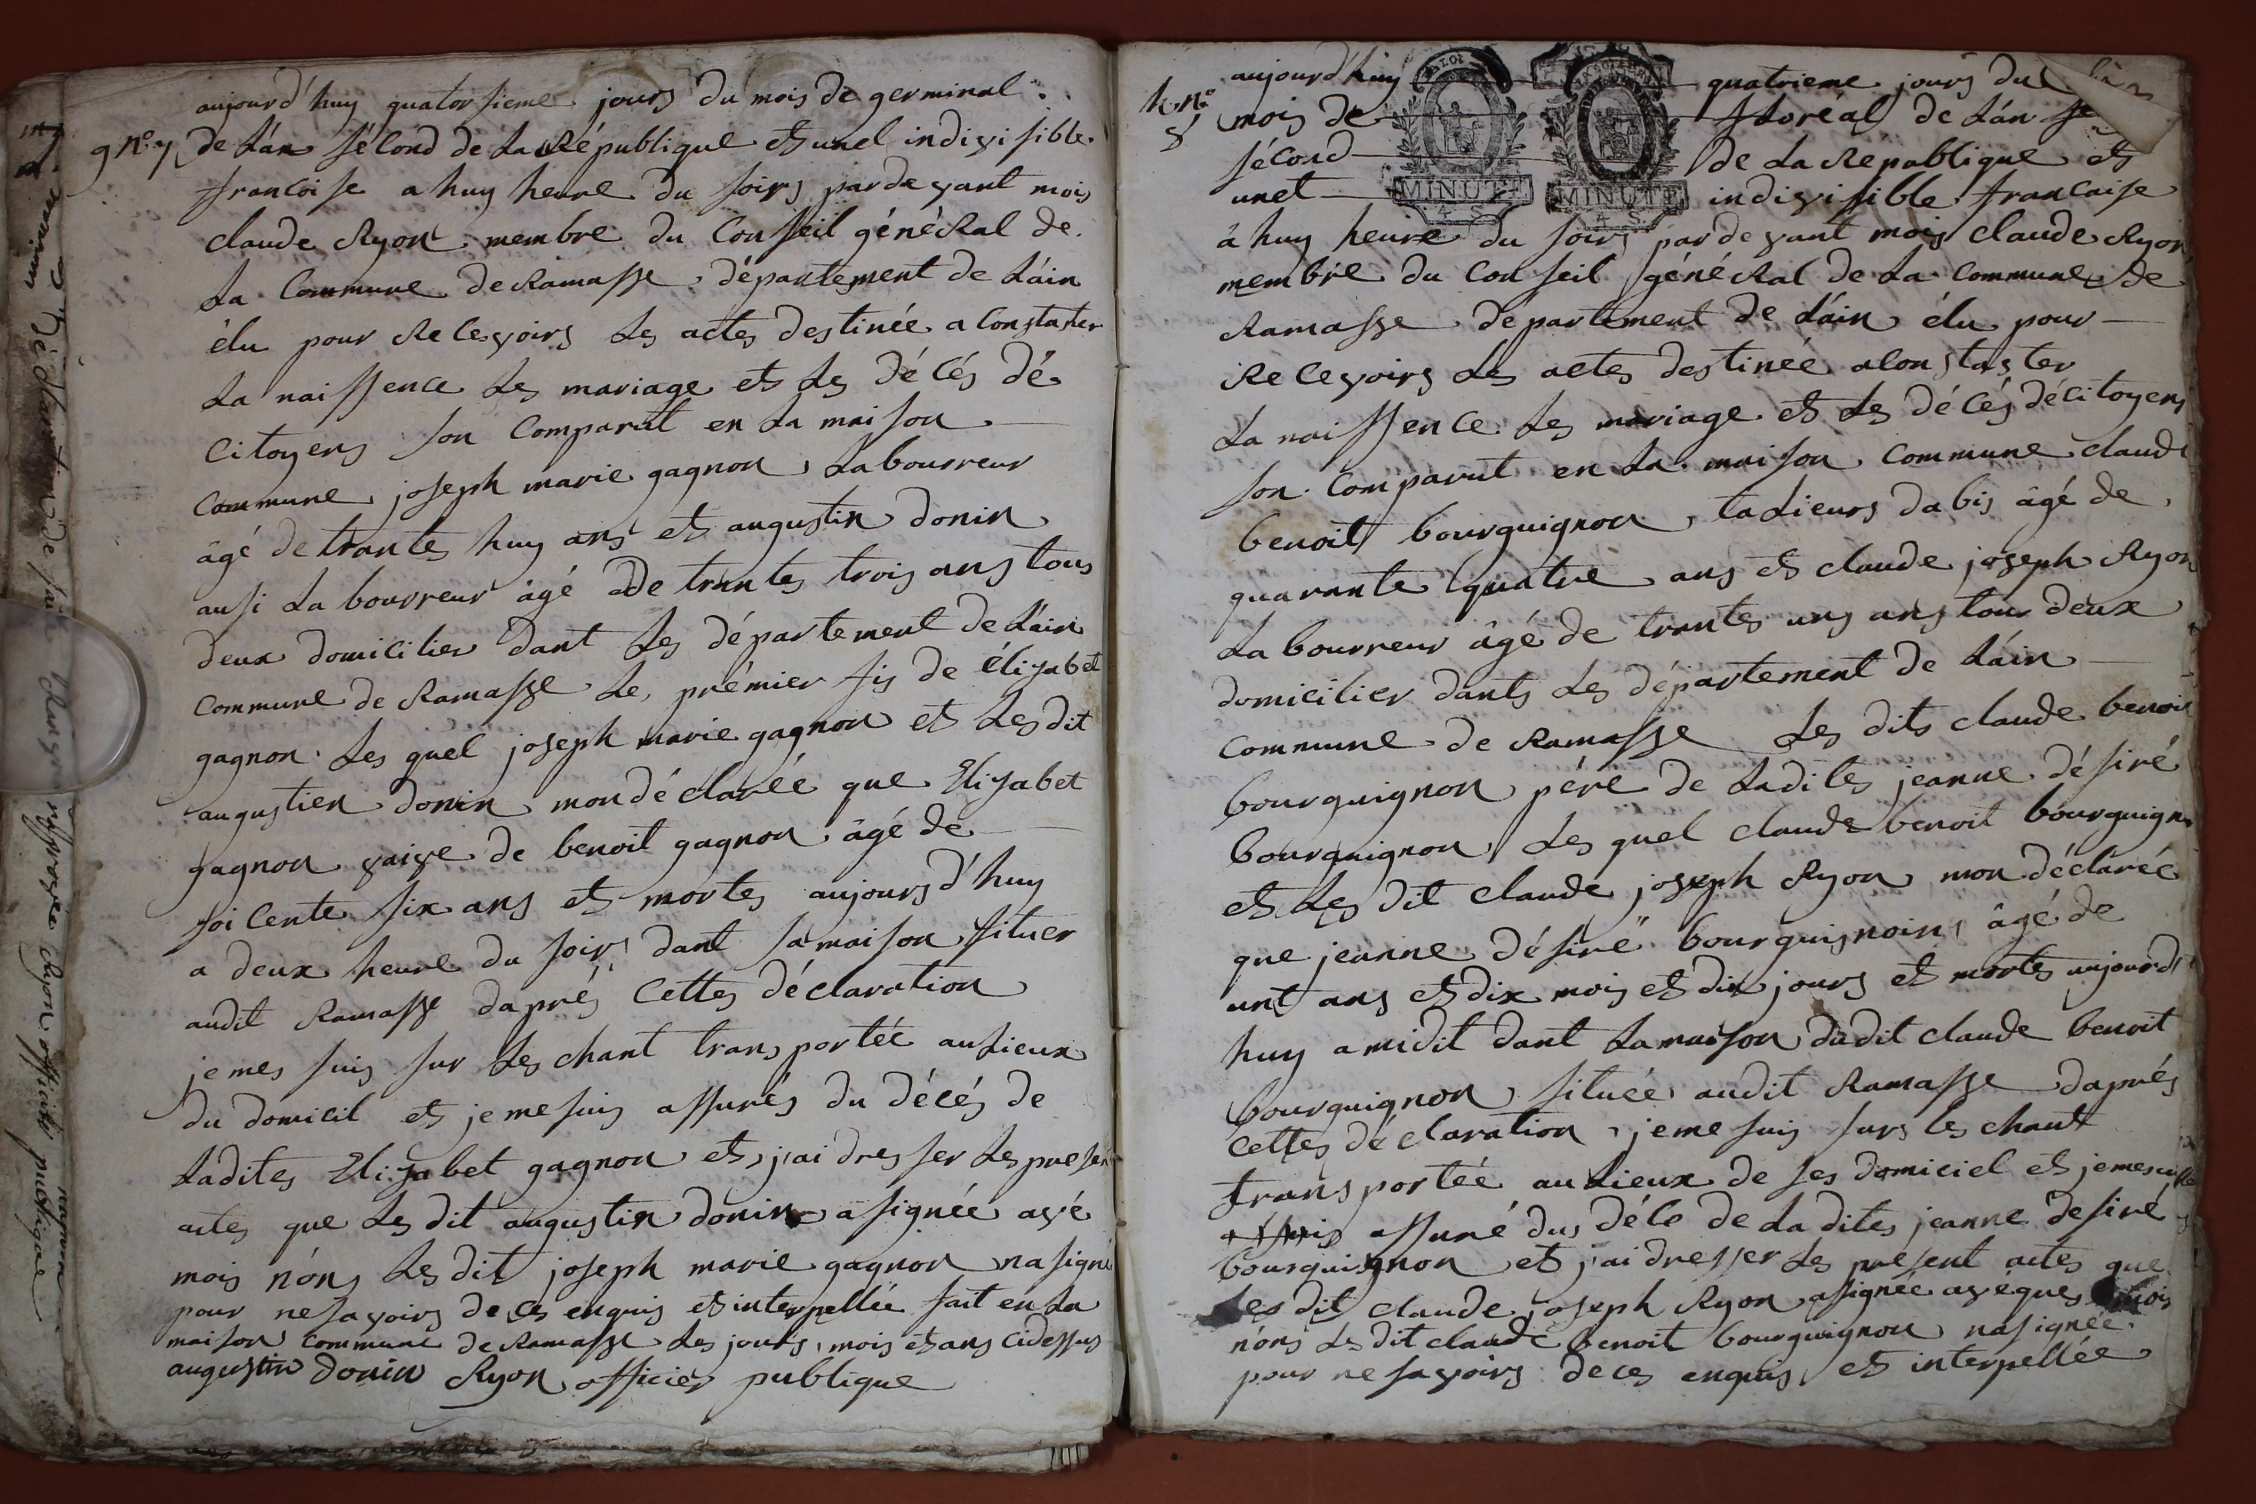 aujourd'huy quatorsieme jours du mois de germinal
g n.º 7 de L'án sécond de La République et unel indivisible
francoise a huy heure du soirs pardevant mois
claude Ryon membre du Conseil généRal de
La Commune de Ramasse département de L'áin
élu pour Recevoirs Les actes destinée a Constater
La naissence Les mariage et Les décés dé
Citoyens son Comparut en La maison
Commune joseph marie gagnon Labourreur
âgé de trantes huy ans et augustin donin
ausi Labourreur âgé de trantes trois ans tous
deux domicilier dant Les département de L'áin
Commune de Ramasse Le prémier fis de élisabet
gagnon Les quel joseph marie gagnon et Les dit
augustien donin mon déclarée que Elisabet
gagnon vaive de benoit gagnon âgé de
soicente six ans et mortes aujours d'huy
a deux heure du soir dant sa maison situer
audit Ramasse daprés Cettes déclaration
je mes suis sur Les chant transportée au Lieux
du domicil et je me suis assurés du décés de
Ladites Elisabet gagnon et j'ai dresser Les presen
actes que Les dit augustin donin a signée avé
mois nóns Les dit joseph marie gagnon na signé
pour ne savoirs de ces enquis et interpellée fait en La
maison Commune de Ramasse Les jours, mois et ans Cidessus
augustin donin Ryon officier publique
h n.º
8
aujourd'huy quatrieme jours du
mois de floréal de L'án
sécond de La Republique et
unet indivisible francaise
MINUTE
4 S
MINUTE
4 S
â huy heure du soirs pardevant mois claude Ryon
membre du Conseil généRal de La Commune de
Ramasse département de L'áin élu pour
Recevoirs Les actes destinée a Constater
La naissence Les mariage et Les décés dé Citoyens
son Comparut en La maison Commune claude
benoit bourguignon, taLieurs dabis âgé de
quarante quatre ans et claude joseph Ryon
Labourreur âgé de trantes uns ans tour deux
domicilier dants Les département de L'áin
Commune de Ramasse Les dits claude benoit
bourguignon pére de Ladites jeanne désiré
bourguignon Les quel claude benoit bourguign
et Les dit claude joseph Ryon mon déclarée
que jeanne désiré bourguignoin âgé de
unt ans et dix mois et dix jours et mortes aujourd
huy a midit dant La maison dudit claude benoit
bourguignon située audit Ramasse daprés
Cettes déclaration je me suis surs Les chant
transportée au Lieux de ses domiciel et je me
assuré dus déce de La dites jeanne désiré
bourguignon et j'ai dresser Les present actes que
Les dit claude joseph Ryon a signée aveques mois
nóns Les dit claude benoit bourguignon na signée
pour ne savoirs de ces enquis et interpellée